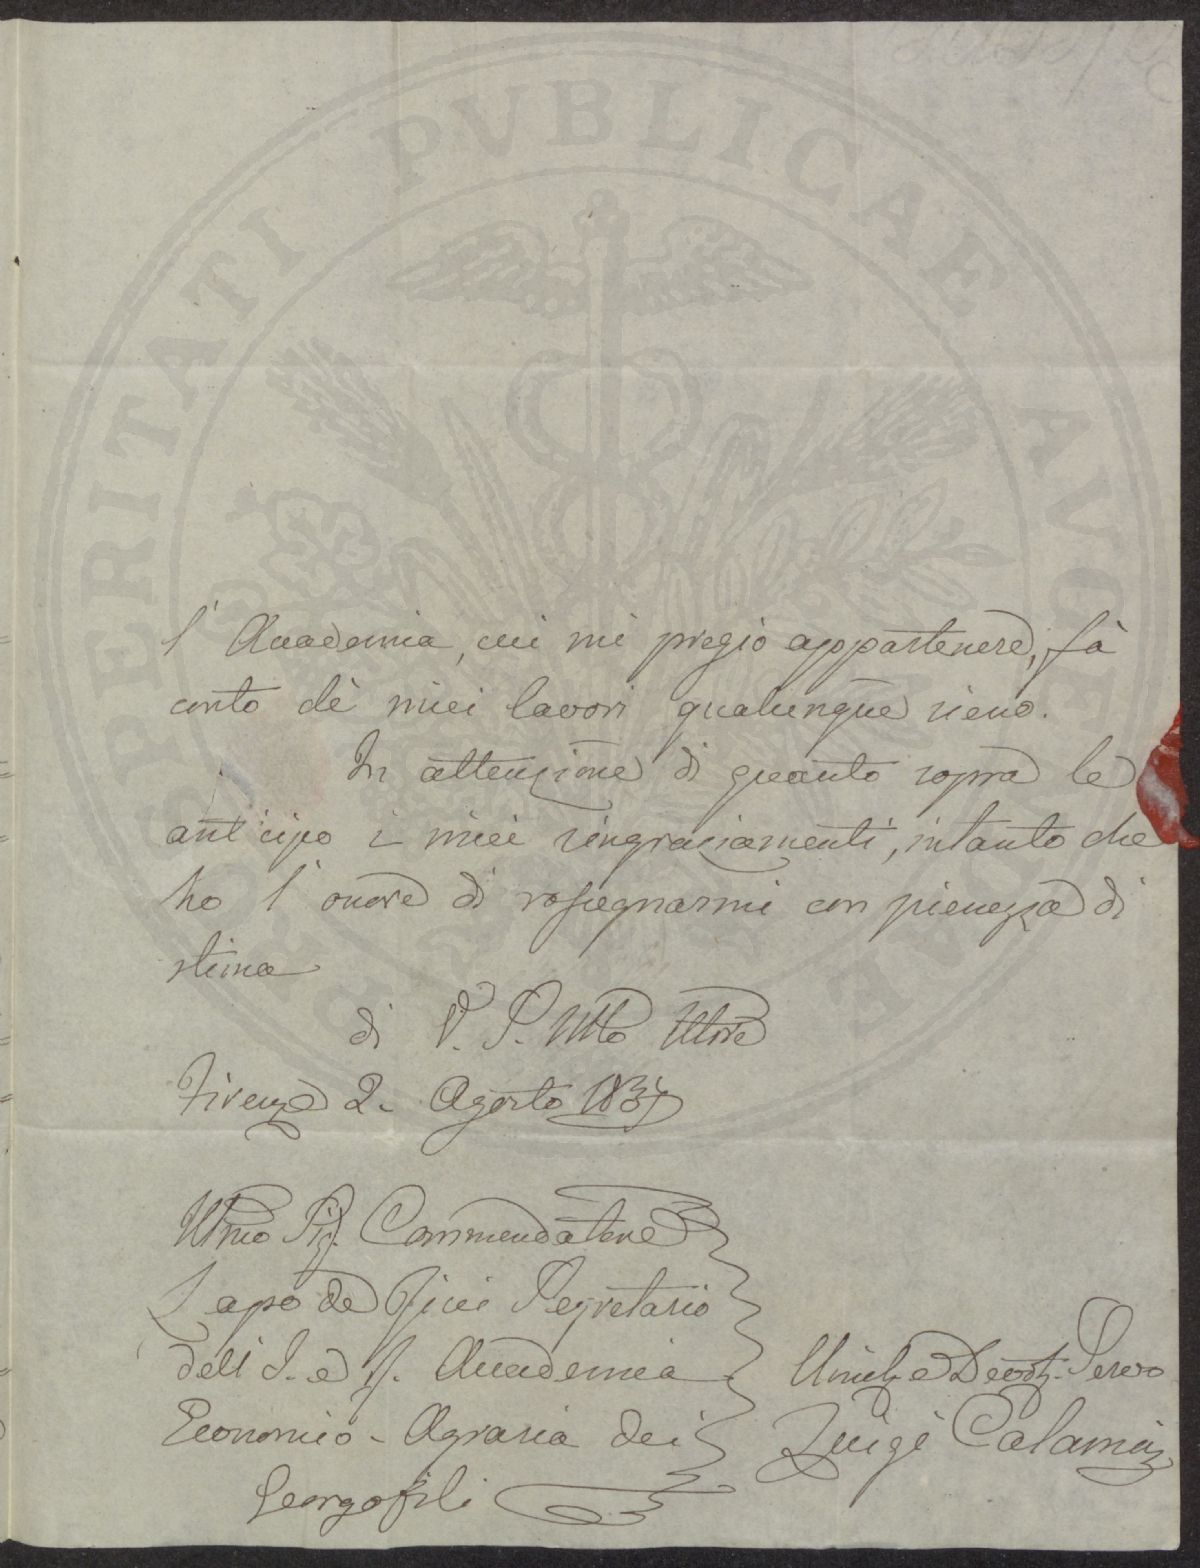 PROSPERITATI PVBLICAE AVGENDAE
l' Accademia, cui mi pregio appartenere, fà
conto de' miei lavori qualunque sieno.
In attenzione di quanto sopra le
anticipo i miei ringraziamenti, intanto che
ho l' onore di rassegnarmi con pienezza di
stima
di V. S. Illma
Firenze 2. Agosto 1837
Illmo Sig. Commendatore
Lapo de Ricci Segretario
dell' I. e R. Accademia
Economico-Agraria dei
Georgofili
Umil. e Devot. Servo
Luigi Calamai